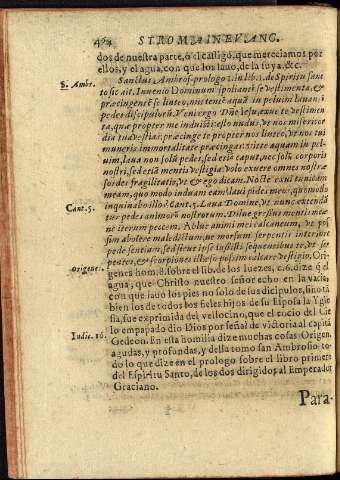 STROMA IN EVANG.
dos de nuestra parte, o el castigo, que mereciamos por
ellos, y el agua, con que los lauo, de la suya, &c.
S. Ambr.
Sanctus Ambros. prologo in lib. 1. de Spiritu sanc
to sic ait. Inuenio Dominum spoliantē se vestimenta, &
præcingentē se linteo, mittentē aquā in peluim lauan
pedes discipulorū. Veni ergo Dñe Iesu, exue te vestimen
ta, quæ propter me induisti: esto nudus, vt nos misericor
dia tua vestias: præcinge te propter nos linteo, vt nos tui
muneris immortalitate præcingas: mitte aquam in pel-
uim, laua non solū pedes, sed etiā caput, nec solū corporis
nostri, sed etiā mentis vestigia: volo exuere omnes nostræ
sordes fragilitatis, vt & ego dicam. Nocte exui tunicam
meam, quomodo induam eam? laui pedes meos, quomodo
Cant. 5.
inquinabo illos? Cant. 5. Laua Domine, vt nunc
tur pedes animorū nostrorum. Dilue gressus mentis meæ
ne iterum peccem. Ablue animi mei calcaneum, vt pos
sim abolere maledictum, ne morsum serpentis interiori
pede sentiam: sed sicut ipse iussisti sequentibus te, vt ser
pentes, & scorpiones illæso possim calcare vestigio. Ori
Origenes.
genes hom. 8. sobre el lib. de los Iuezes, c. 6. dize q̃ el
agua, que Christo nuestro señor echo en la vacia,
con que lauo los pies no solo de sus dicipulos, sino tā
bien los de todos los fieles hijos de su Esposa la Ygle
sia, fue exprimida del vellocino, que el rocio del Cie
lo empapado dio Dios por señal de victoria al capitā
Iudic. 16.
Gedeon. En esta homilia dize muchas cosas Origen.
agudas, y profundas, y della tomo san Ambrosio to-
do lo que dize en el prologo sobre el libro primero
del Espiritu Santo, de los dos dirigidos al Emperador
Graciano.
Para-